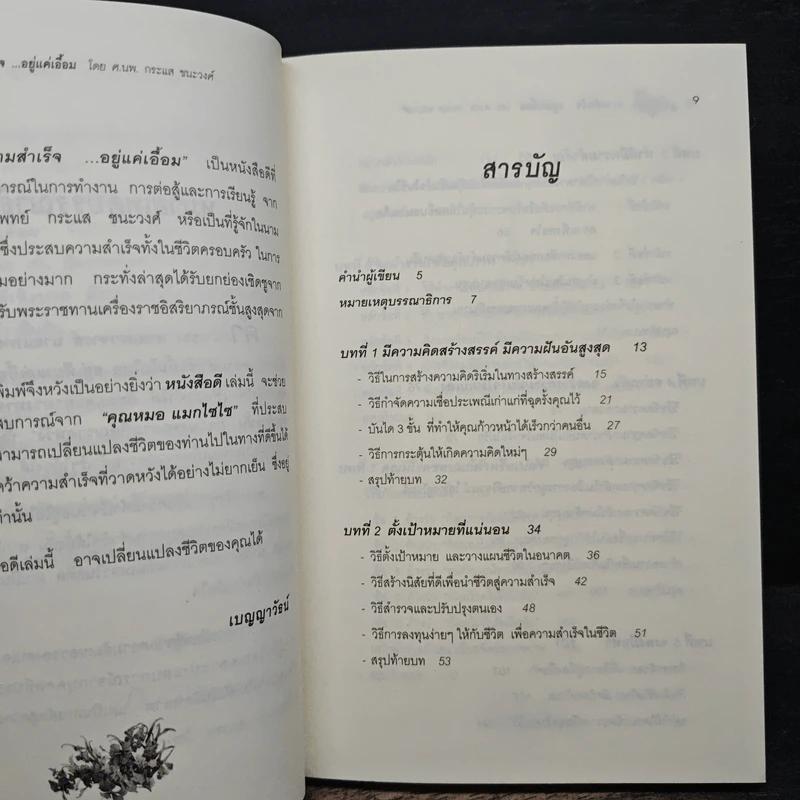 ...อยู่แค่เอื้อม โดย ศ.นพ. กระแส ชนะวงศ์
ามสำเร็จ ...อยู่แค่เอื้อม” เป็นหนังสือดีที่
การณ์ในการทำงาน การต่อสู้และการเรียนรู้ จาก
พทย์ กระแส ชนะวงศ์ หรือเป็นที่รู้จักในนาม
ซึ่งประสบความสำเร็จทั้งในชีวิตครอบครัว ในการ
มอย่างมาก กระทั่งล่าสุดได้รับยกย่องเชิดชูจาก
รับพระราชทานเครื่องราชอิสริยาภรณ์ชั้นสูงสุดจาก
พิมพ์จึงหวังเป็นอย่างยิ่งว่า หนังสือดี เล่มนี้ จะช่วย
สบการณ์จาก “คุณหมอ แมกไซไซ” ที่ประสบ
ามารถเปลี่ยนแปลงชีวิตของท่านไปในทางที่ดีขึ้นได้
คว้าความสำเร็จที่วาดหวังได้อย่างไม่ยากเย็น ซึ่งอยู่
ท่านั้น
อดีเล่มนี้ อาจเปลี่ยนแปลงชีวิตของคุณได้
เบญญาวัธน์
9
สารบัญ
คำนำผู้เขียน 5
หมายเหตุบรรณาธิการ 7
บทที่ 1 มีความคิดสร้างสรรค์ มีความฝันอันสูงสุด 13
- วิธีในการสร้างความคิดริเริ่มในทางสร้างสรรค์ 15
- วิธีกำจัดความเชื่อประเพณีเก่าแก่ที่ฉุดรั้งคุณไว้ 21
- บันได 3 ขั้น ที่ทำให้คุณก้าวหน้าได้เร็วกว่าคนอื่น 27
- วิธีการกระตุ้นให้เกิดความคิดใหม่ๆ 29
- สรุปท้ายบท 32
บทที่ 2 ตั้งเป้าหมายที่แน่นอน 34
- วิธีตั้งเป้าหมาย และวางแผนชีวิตในอนาคต 36
- วิธีสร้างนิสัยที่ดีเพื่อนำชีวิตสู่ความสำเร็จ 42
- วิธีสำรวจและปรับปรุงตนเอง 48
- วิธีการลงทุนง่ายๆ ให้กับชีวิต เพื่อความสำเร็จในชีวิต 51
- สรุปท้ายบท 53